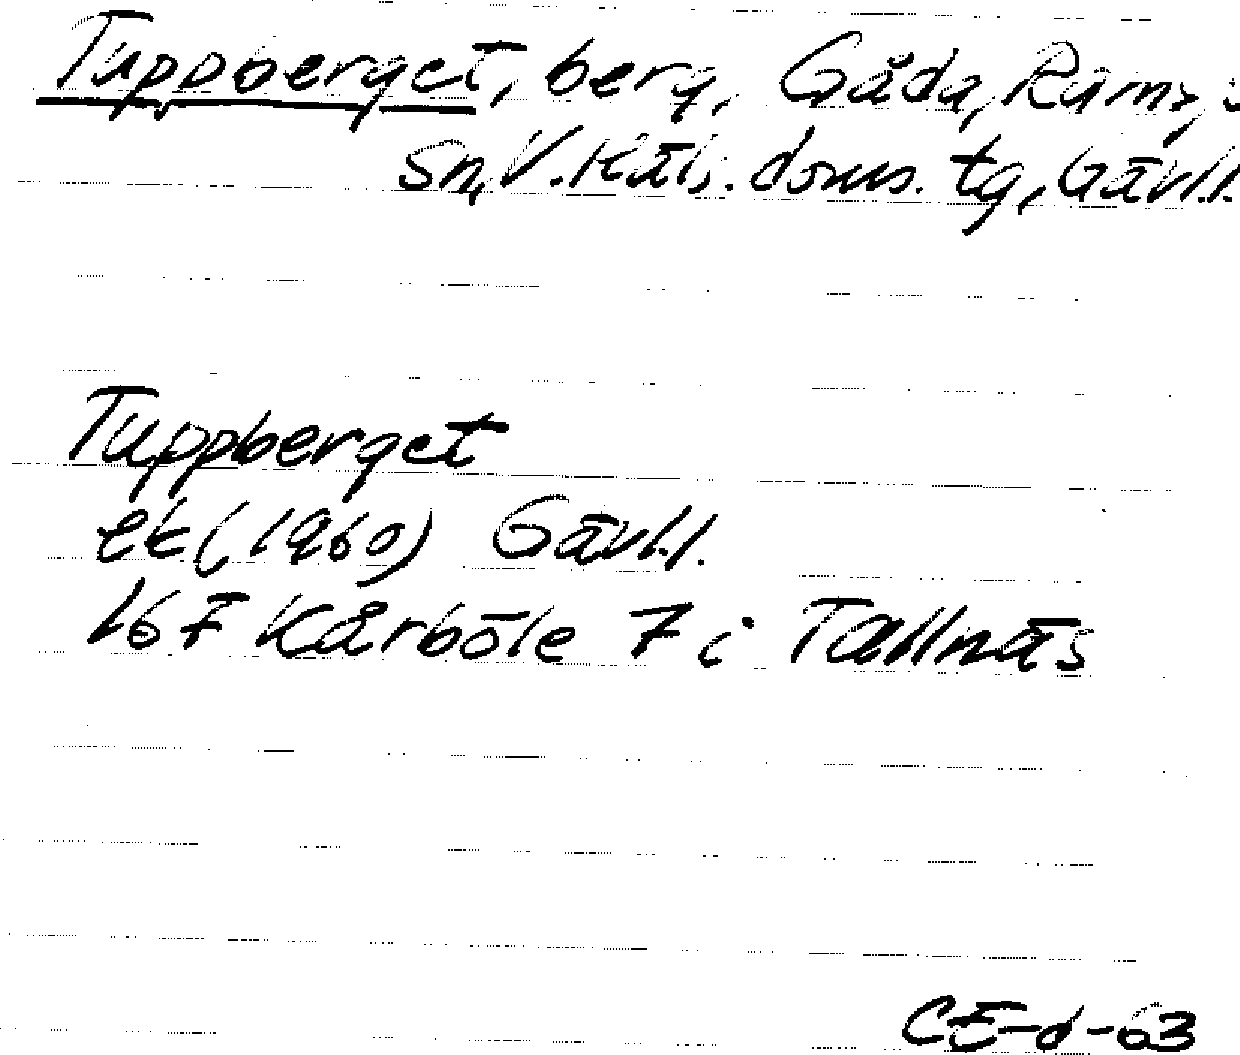 Tuppberget, berg, Gåda, Ramsjö
sn, V. Häls. doms. tg, Gävl.l.
Tuppberget
ek (1960) Gävl.l.
16 F Kårböle 7 c Tallnäs
CE-d-63